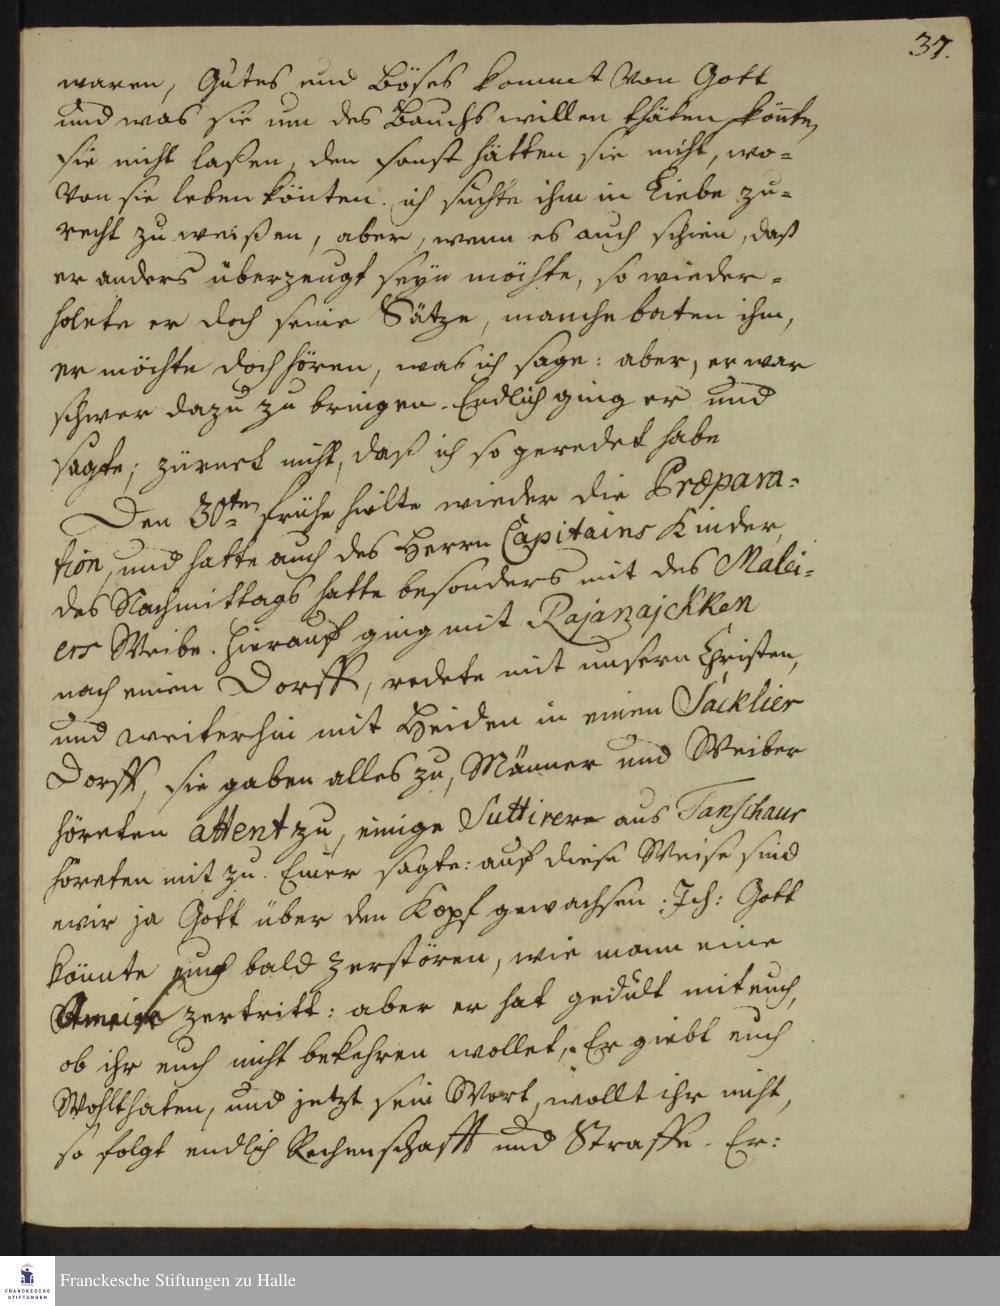 37.
waren, Gutes und Böses kommt von Gott
und was sie um des Bauchs willen thäten könnten
sie nicht laßen, den sonst hätten sie nicht, wo-
von sie leben könten. ich suchte ihm in Liebe zu-
recht zu weißen, aber, wenn es auch schien, daß
er anders überzeugt seyn möchte, so wieder-
holete er doch seine Sätze, manche baten ihm,
er möchte doch hören, was ich sage: aber, er war
schwer dazu zu bringen. Endlich ging er und
sagte; zürnet nicht, daß ich so geredet habe
Den 30ten frühe hielte wieder die Præpara-
tion, und hatte auch des Herrn Capitains Kinder,
des Nachmittags hatte besonders mit des Malei-
ers Weibe. Hierauf ging mit Rajanajckken
nach einen Dorff, redete mit unsern Christen,
und weiterhin mit Heiden in einen Sacklier
Dorff, sie gaben alles zu, Männer und Weiber
höreten attent zu, einige Suttirere aus Tanschaur
höreten mit zu. Einer sagte: auf diese Weise sind
wir ja Gott über den Kopf gewachsen. Ich: Gott
könnte euch bald zerstören, wie mann eine
Ameise zertritt: aber er hat gedult mit euch,
ob ihr euch nicht bekehren wollet, Er giebt euch
Wohlthaten, und jetzt sein Wort, wollt ihr nicht,
so folgt endlich Rechenschafft und Straffe. Er:
FRANCKESCHE
STIFTUNGEN
Franckesche Stiftungen zu Halle